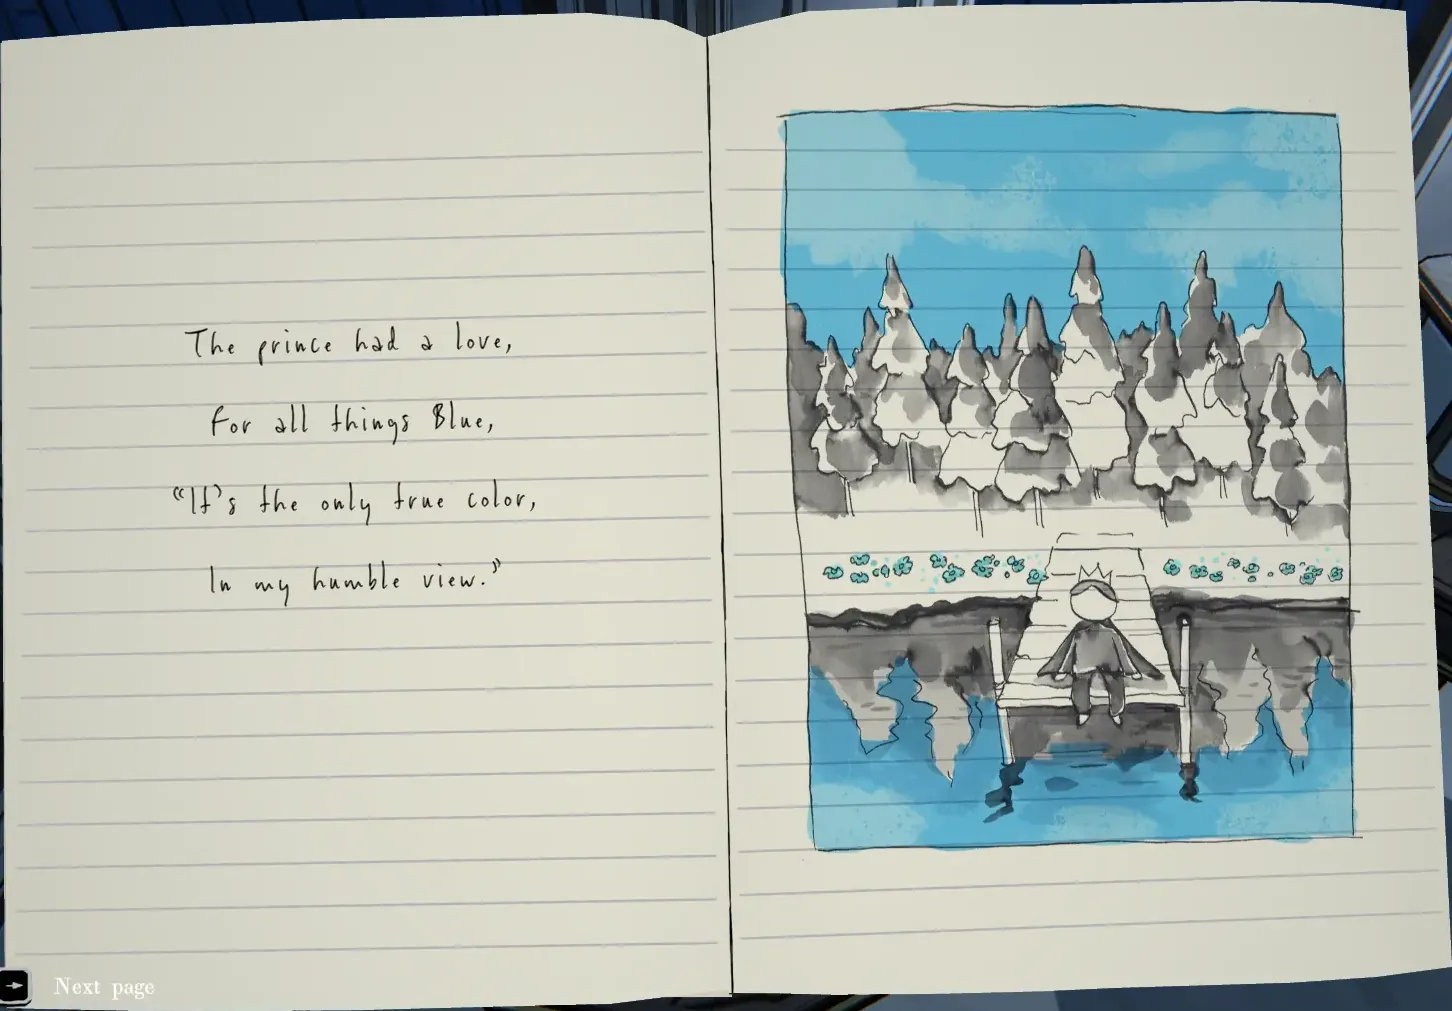 The prince had a love,
For all things Blue,
“It's the only true color,
In my humble view.”
Next page